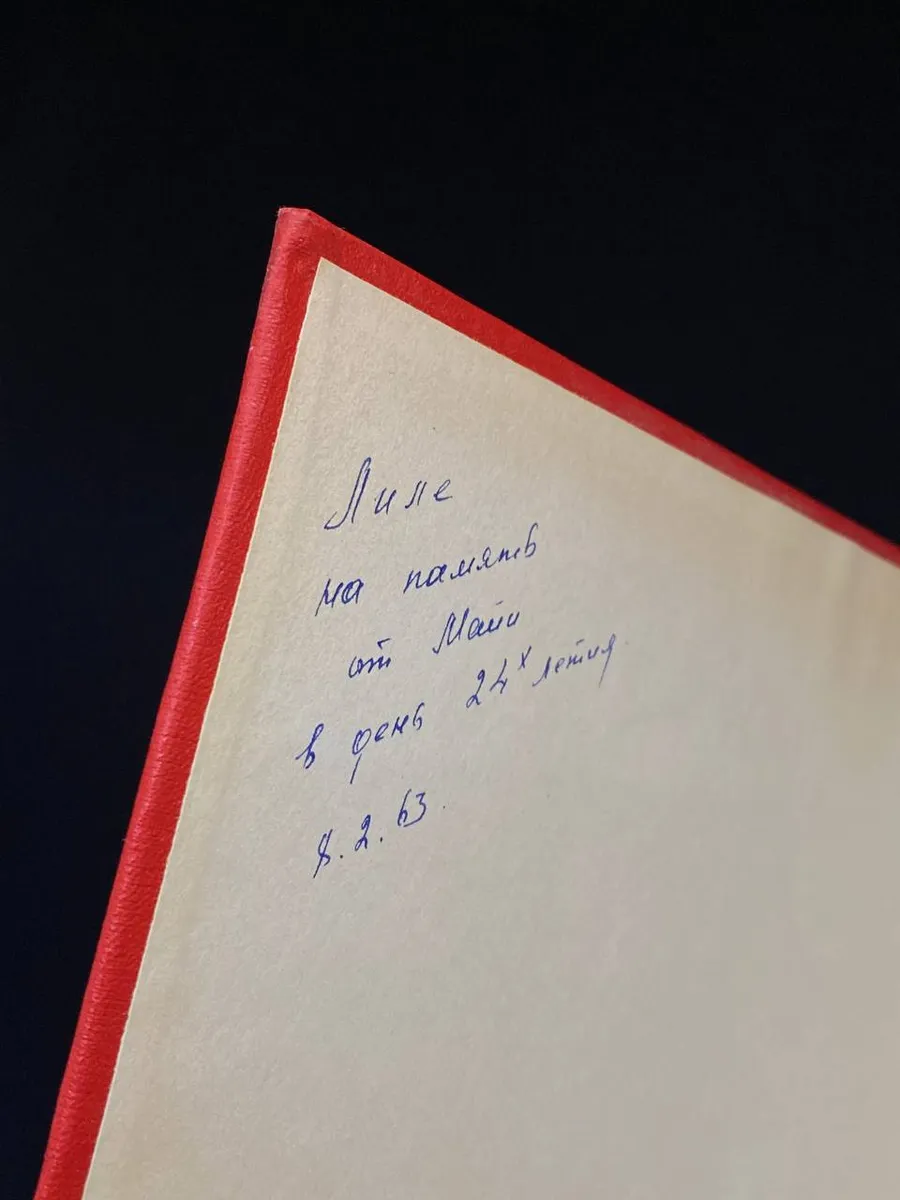 Лиле
на память
от Майи
в день 24х летия.
8.2.63.